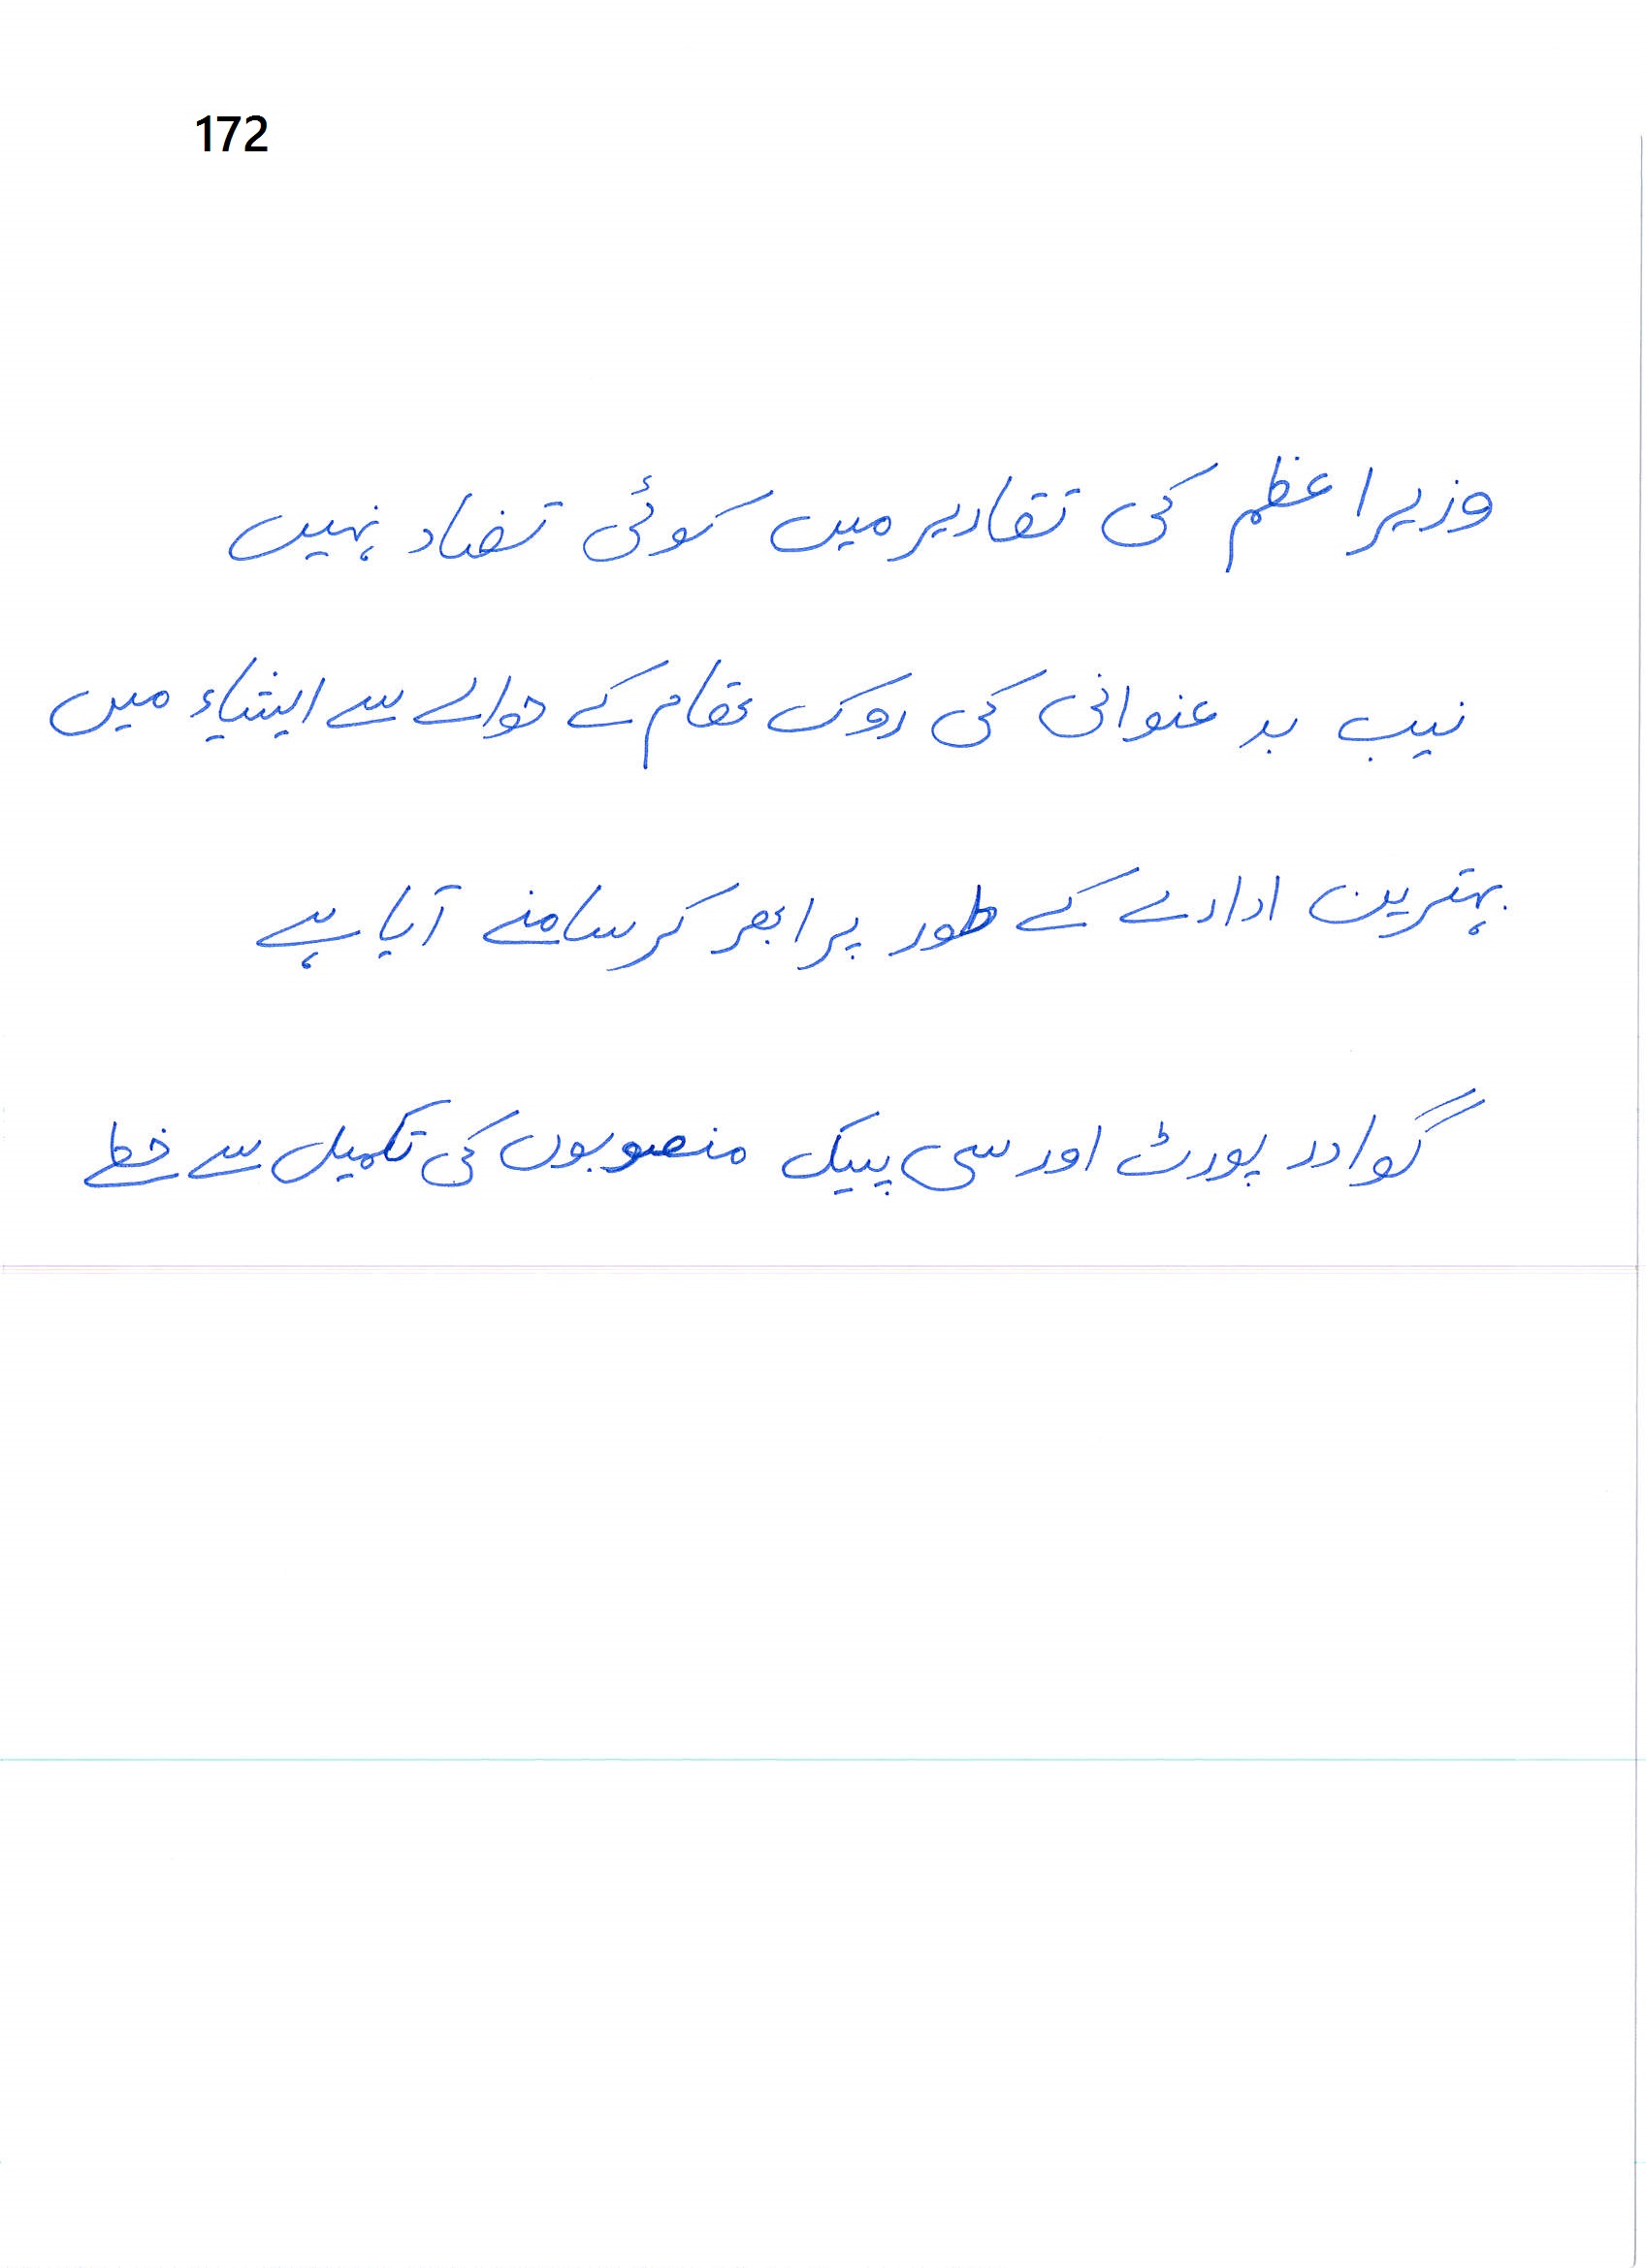 172
وزیراعظم کی تقاریر میں کوئی تضاد نہیں
نیب بد عنوانی کی روک تھام کے حوالے سے ایشیاء میں
بہترین ادارے کے طور پر ابھر کر سامنے آیا ہے
گوادر پورٹ اور سی پیک منصوبوں کی تکمیل سے خطے